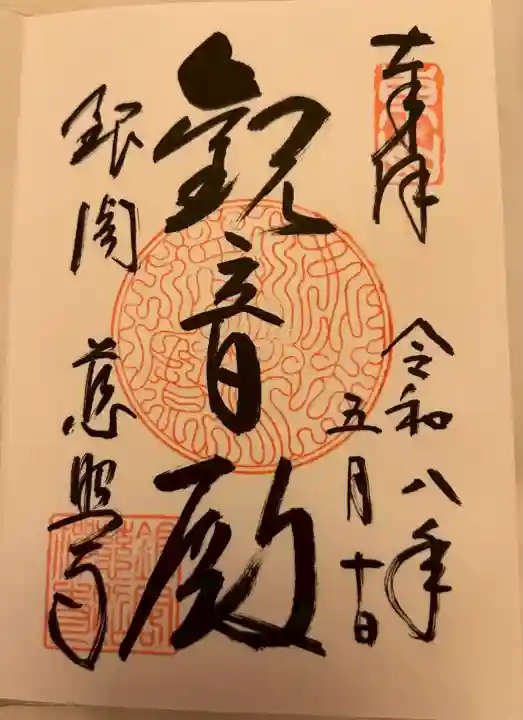 奉拝
令和八年
五月十日
観音殿
銀閣
慈照寺